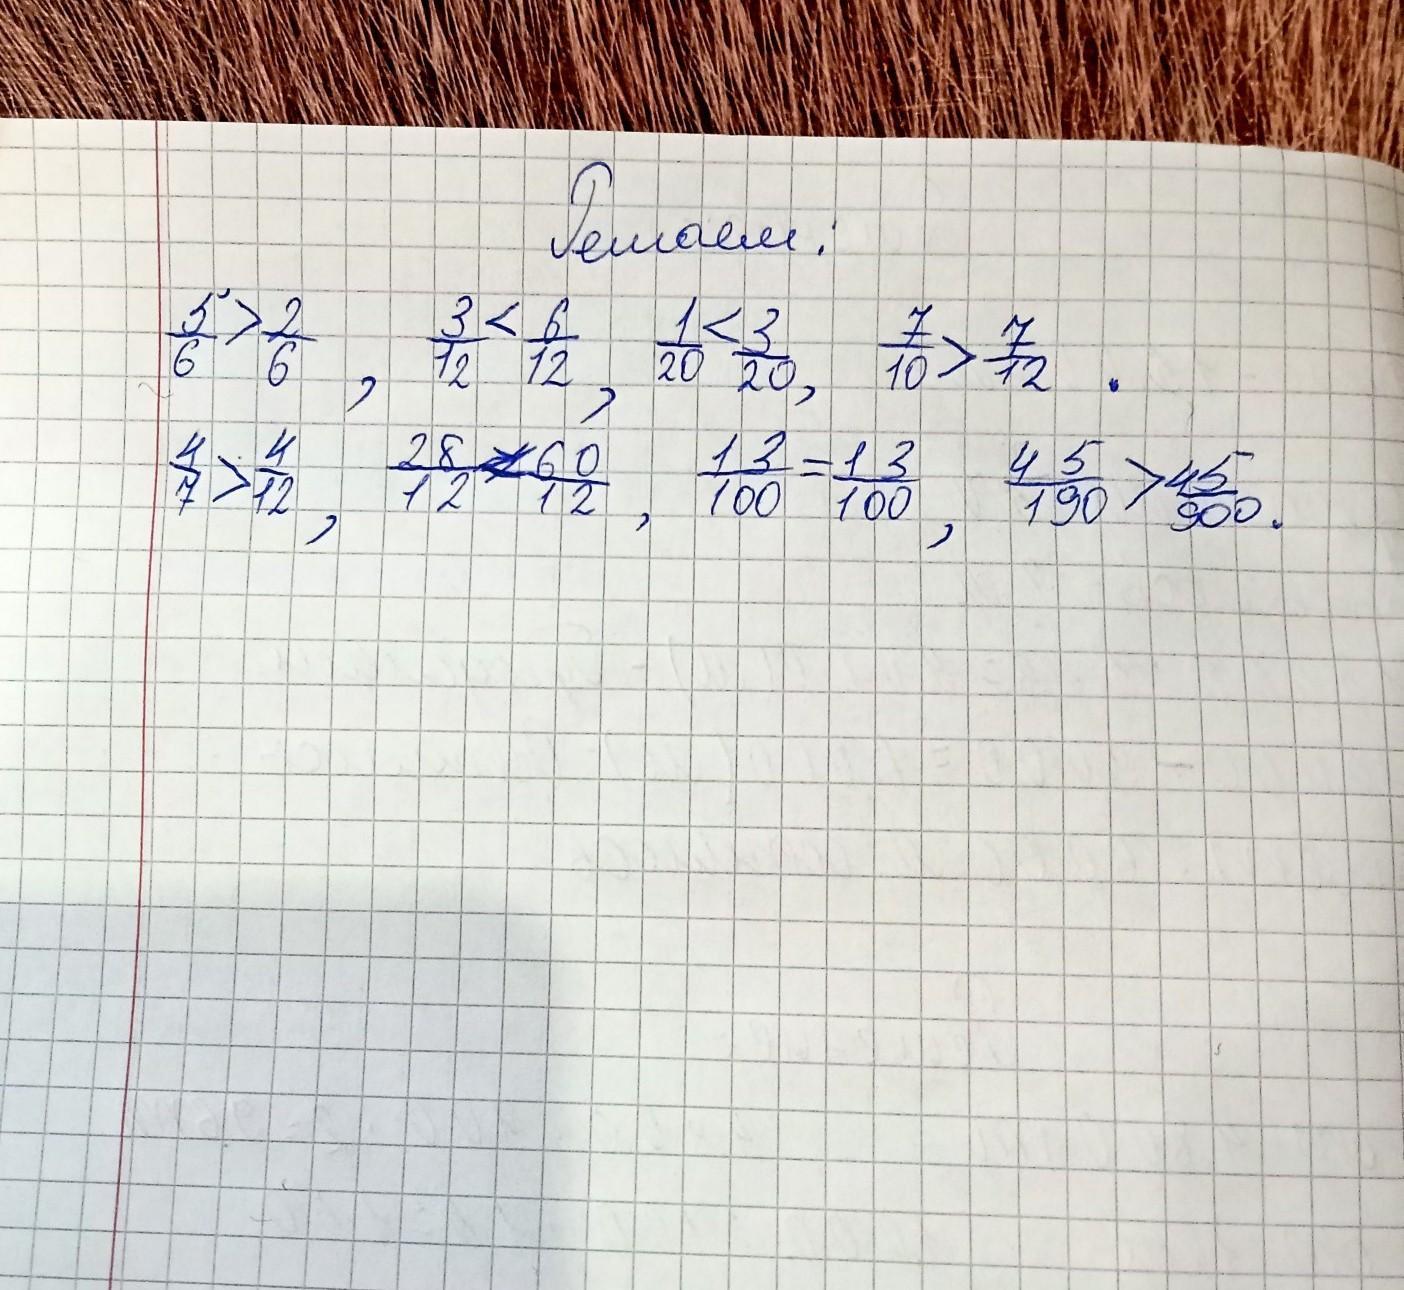 Решаем:
5/6 > 2/6, 3/12 < 6/12, 1/20 < 3/20, 7/10 > 7/12.
4/7 > 4/12, 28/12 < 60/12, 13/100 = 13/100, 45/190 > 45/900.